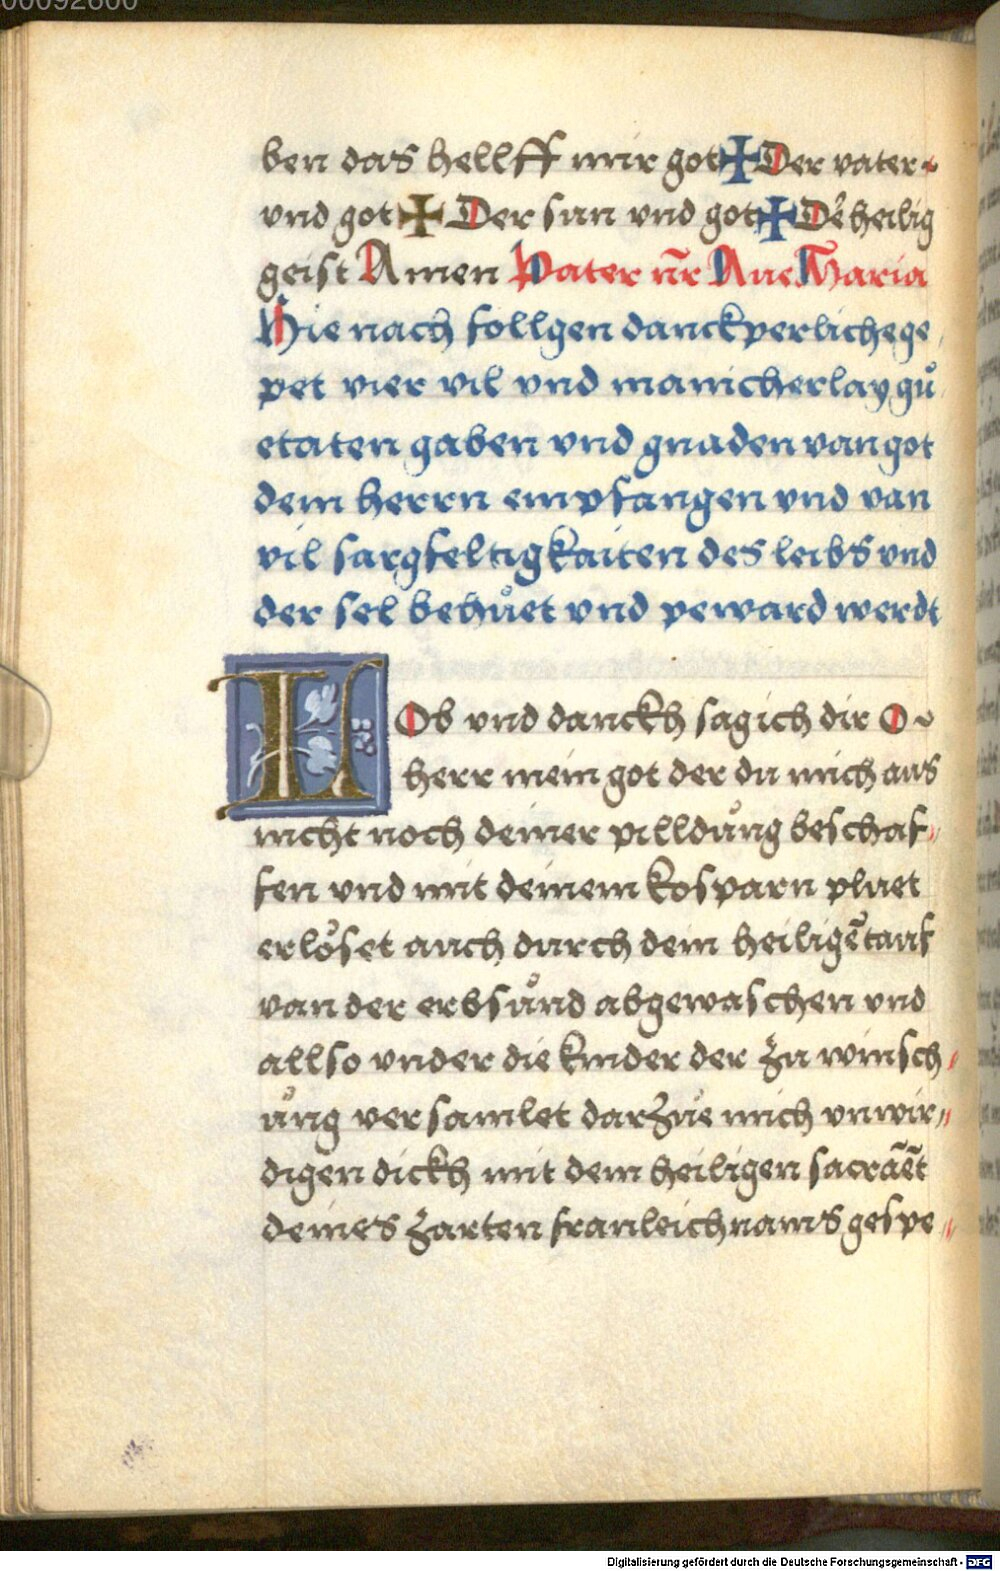 00092600
ben das hellff mir got ✠ Der vater
vnd got ✠ Der sun vnd got ✠ De᷑ heilig
geist Amen Pater nr̄ Aue Maria
Hie nach follgen danckperliche ge
pet vier vil vnd manicherlay gů
etaten gaben vnd gnaden van got
dem herrn empfangen vnd van
vil sargfeltigkaiten des leibs vnd
der sel behůet vnd peward werdt
LOb vnd danckh sag ich dir O
herr mein got der du mich aus
nicht noch deiner pilldůng beschaf
fen vnd mit deinem kosparn pluet
erlöset auch durch dein heiligē tauf
van der erbsůnd abgewaschen vnd
allso vnder die kinder der zu winsch
ůng versamlet darzůe mich vnwir
digen dickh mit dem heiligen sacrāēt
deines zarten franleichnams gespe
Digitalisierung gefördert durch die Deutsche Forschungsgemeinschaft - DFG